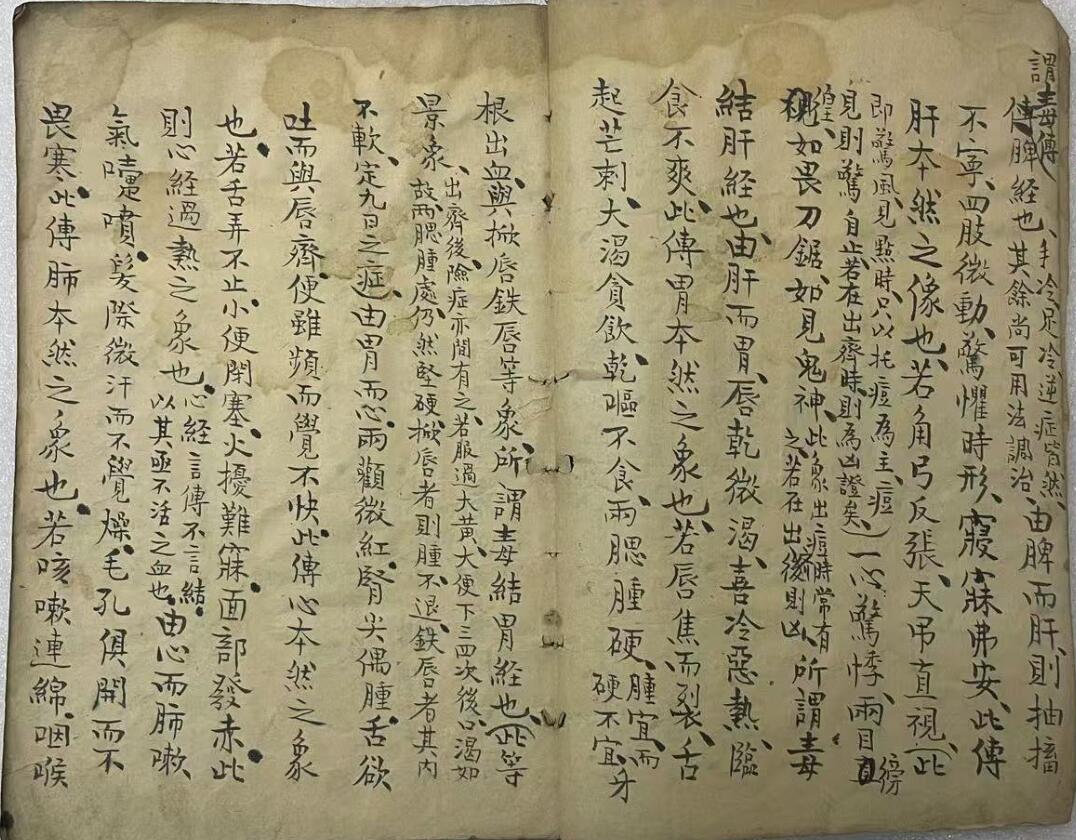 謂毒傳
傳脾經也、手冷足冷逆症皆然、其餘尚可用法調治、由脾而肝、則抽搐
不寧、四肢微動、驚懼時形、寢寐弗安、此傳
肝本然之像也、若角弓反張、天吊直視、(此
即驚風、見點時、只以托痘為主、痘
見則驚自止、若在出齊時則為凶證矣)一心驚悸、兩目直傍
徨、如畏刀鋸、如見鬼神、此象出痘時常有之、若在出齊後則凶、所謂毒
結肝經也、由肝而胃、唇乾微渴、喜冷惡熱、臨
食不爽、此傳胃本然之象也、若唇焦而裂、舌
起芒刺、大渴貪飲、乾嘔不食、兩腮腫硬、腫宜、而硬不宜、牙
根出血、與掀唇鉄唇等象、所謂毒結胃經也、(此等
景象、出齊後、險症亦間有之、若服過大黃、大便下三四次後、口渴如
故、兩腮腫處、仍然堅硬、掀唇者則腫不退、鉄唇者其內
不軟、定九日之症、由胃而心、兩顴微紅、腎尖偶腫、舌欲
吐而與唇齊、便雖頻而覺不快、此傳心本然之象
也、若舌弄不止、小便閉塞、火擾難寐、面部發赤、此
則心經過熱之象也、心經言傳不言結、以其亟不活之血也、由心而肺、嗽
氣嚏噴、髮際微汗而不覺燥、毛孔俱開而不
畏寒、此傳肺本然之象也、若咳嗽連綿、咽喉